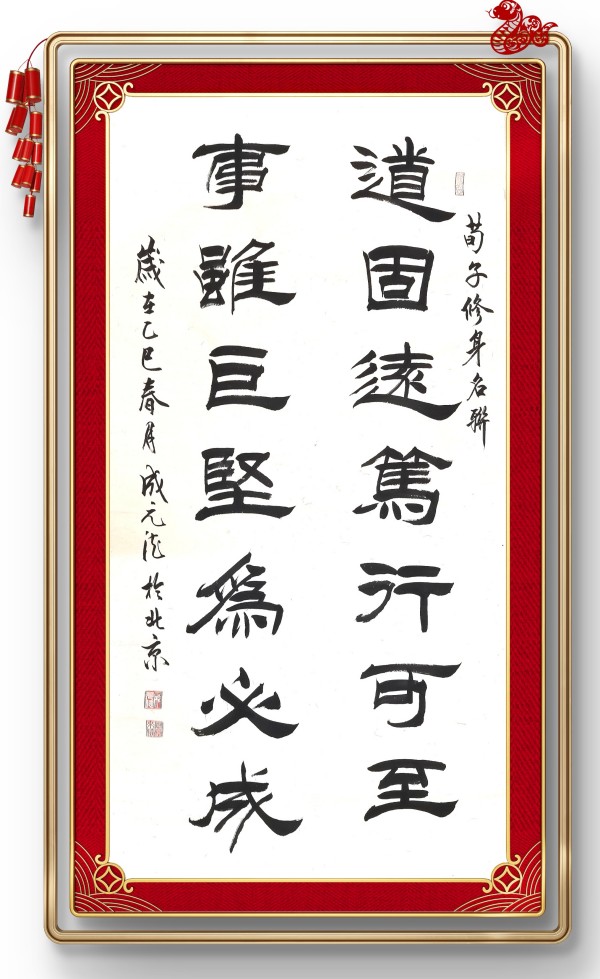 荀子修身名聯
道固遠篤行可至
事雖巨堅為必成
歲在乙巳春月成元波於北京